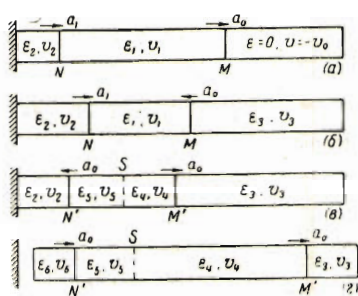 a₁ a₀
ε₂, υ₂ ε₁, υ₁ ε=0, υ=-υ₀
N M (а)
a₁ a₀
ε₂, υ₂ ε₁, υ₁ ε₃, υ₃
N M (б)
a₀ S a₀
ε₂, υ₂ ε₅, υ₅ ε₄, υ₄ ε₃, υ₃
N' M' (в)
a₀ S a₀
ε₆, υ₆ ε₅, υ₅ ε₄, υ₄ ε₃, υ₃
N' M' (г)